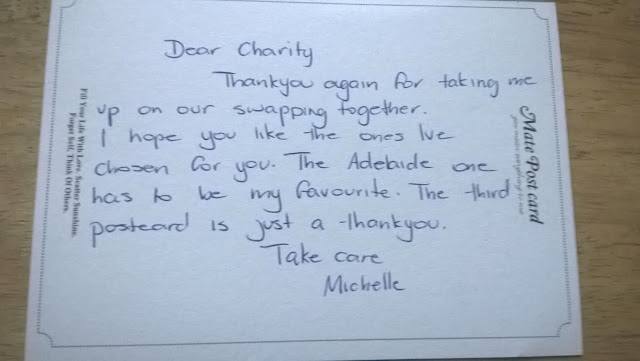 Dear Charity
Thankyou again for taking me
up on our swapping together.
I hope you like the ones Ive
chosen for you. The Adelaide one
has to be my favourite. The third
postcard is just a thankyou.
Take care
Michelle
Fill Your Life With Love. Scatter Sunshine.
Forget Self, Think Of Others.
Mate Post card